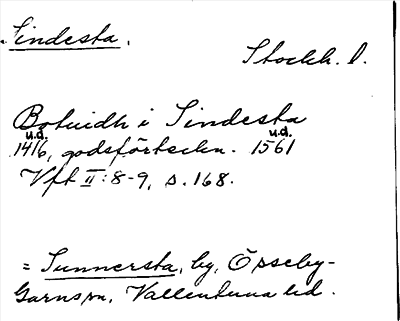 Sindesta.
Stockh. l.
Botuidh i Sindesta
u.d. u.d.
1416, godsförteckn. 1561
Vft II:8-9, s.168.
= Sunnersta, by, Össeby-
Garns sn, Vallentuna hd.